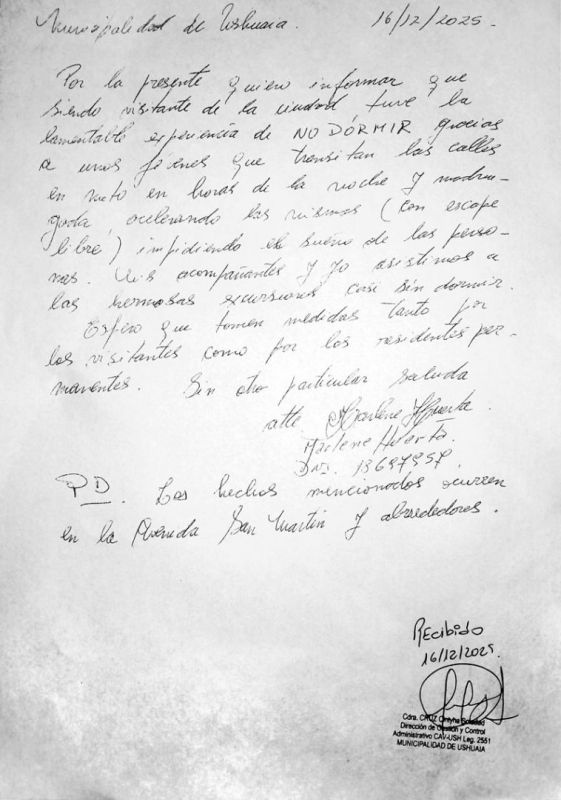 Municipalidad de Ushuaia. 16/12/2025-
Por la presente quiero informar que
siendo visitante de la ciudad tuve la
lamentable experiencia de NO DORMIR gracias
a unos jóvenes que transitan las calles
en moto en horas de la noche y madru-
gada, acelerando las mismas (con escape
libre) impidiendo el sueño de las perso-
nas. Mis acompañantes y yo asistimos a
las hermosas excursiones casi sin dormir.
Espero que tomen medidas tanto por
los visitantes como por los residentes per-
manentes. Sin otro particular saluda
atte Marlene Huerta.
Marlene Huerta.
DNI. 18697957.
PD. Los hechos mencionados ocurren
en la Avenida San Martín y alrededores.
Recibido
16/12/2025.
Cdra. CRUZ Soledad
Dirección de Gestión y Control
Administrativo CAV-USH Leg. 2551
MUNICIPALIDAD DE USHUAIA